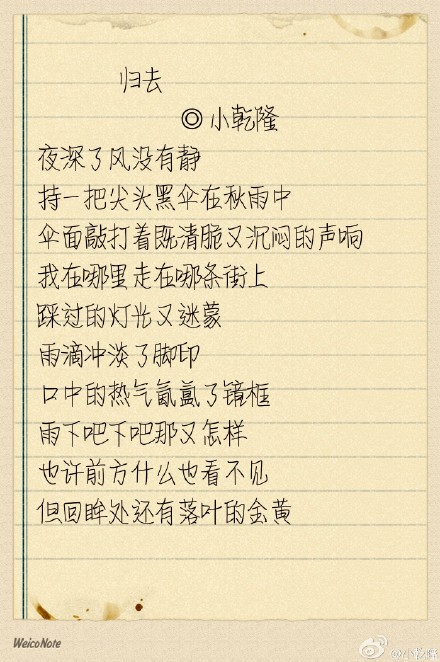 归去
◎ 小乾隆
夜深了风没有静
持一把尖头黑伞在秋雨中
伞面敲打着既清脆又沉闷的声响
我在哪里走在哪条街上
踩过的灯光又迷蒙
雨滴冲淡了脚印
口中的热气氤氲了镜框
雨下吧下吧那又怎样
也许前方什么也看不见
但回眸处还有落叶的金黄
WeicoNote
@小乾隆